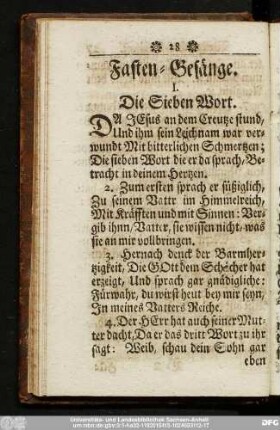 28
Fasten-Gesänge.
I.
Die Sieben Wort.
DA JEsus an dem Creutze stund,
Und ihm sein Leichnam war ver-
wundt Mit bitterlichen Schmertzen;
Die sieben Wort die er da sprach, Be-
tracht in deinem Hertzen.
2. Zum ersten sprach er süßiglich,
Zu seinem Vattr im Himmelreich,
Mit Kräfften und mit Sinnen: Ver-
gib ihnn, Vatter, sie wissen nicht, was
sie an mir vollbringen.
3. Hernach denck der Barmher-
tzigkeit, Die GOtt dem Schächer hat
erzeigt, Und sprach gar gnädigliche:
Fürwahr, du wirst heut bey mir seyn,
In meines Vatters Reiche.
4. Der HErr hat auch seiner Mut-
ter dacht, Da er das dritt Wort zu ihr
sagt: Weib, schau dein Sohn gar
eben
Universitäts- und Landesbibliothek Sachsen-Anhalt
DFG